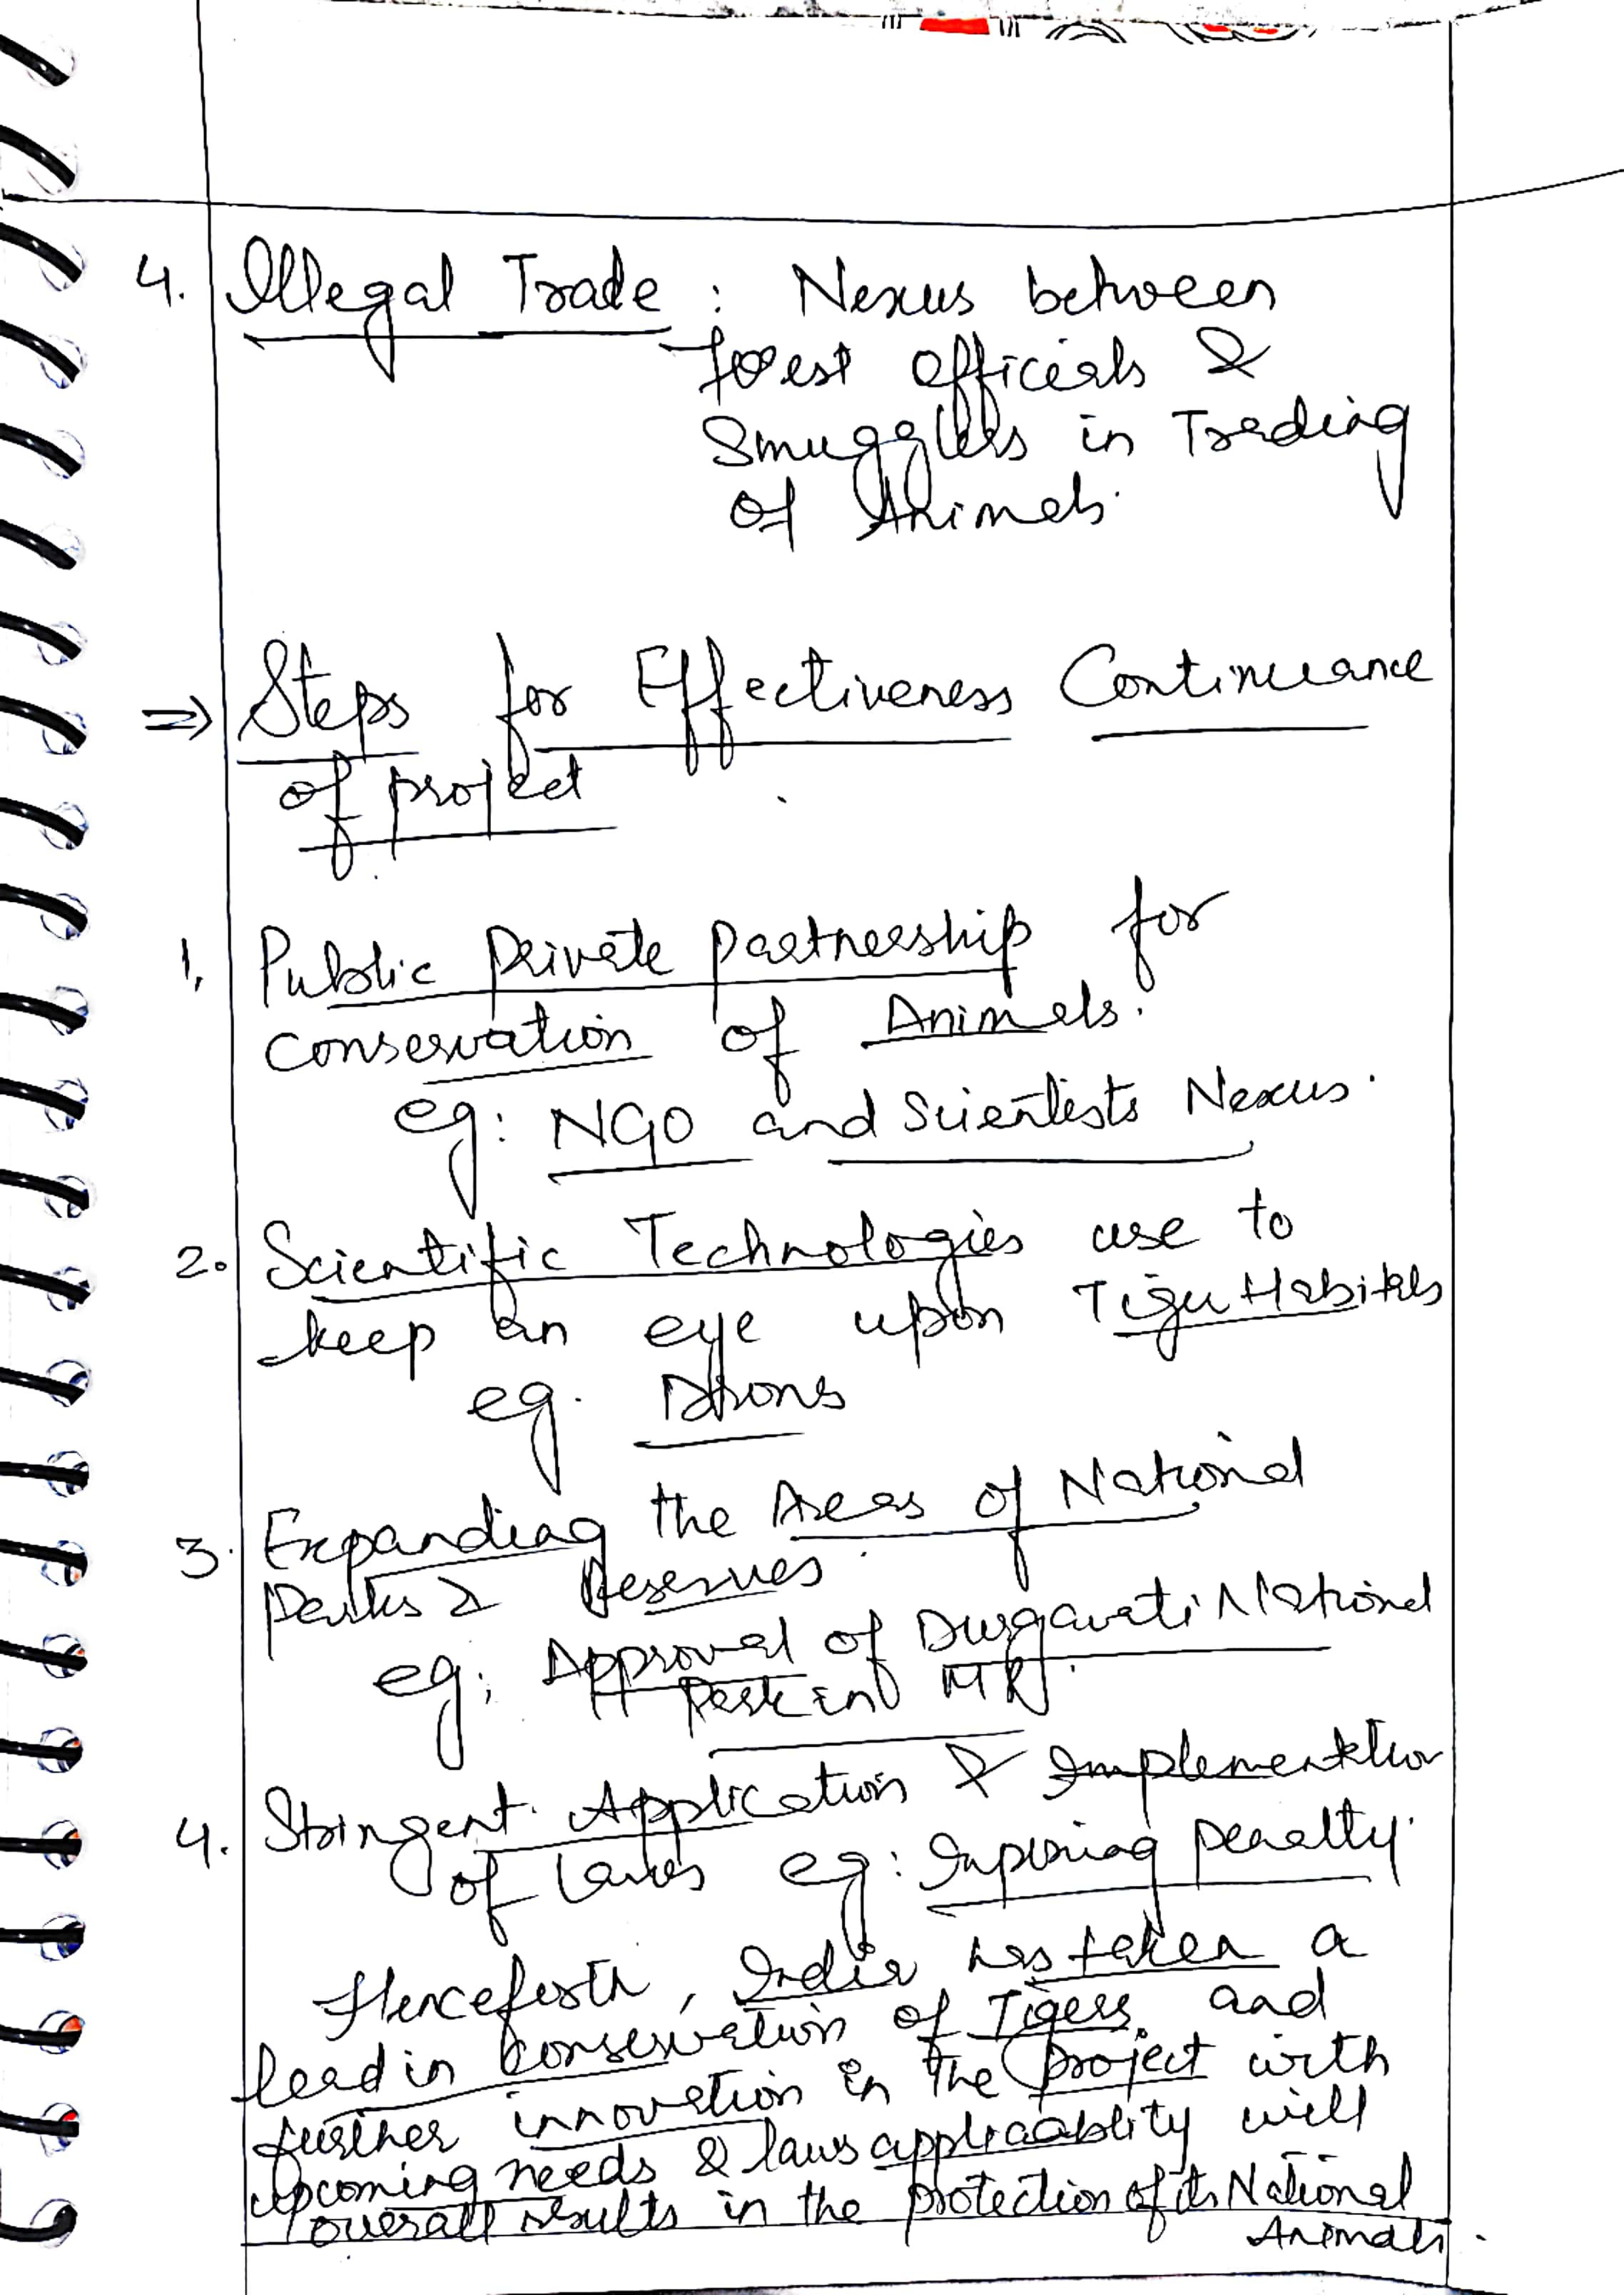 4. Illegal Trade : Nexus between
forest officials &
Smugglers in Trading
of Animals.
⇒ Steps for Effectiveness Continuance
of project
1. Public Private Partnership for
conservation of Animals.
eg: NGO and Scientists Nexus.
2. Scientific Technologies use to
keep an eye upon Tiger Habitats
eg. Drons
3. Expanding the Areas of National
Parks & Reserves.
eg: Approval of Durgavati National
Park in MP.
4. Stringent Application & Implementation
of Laws eg: Imposing penalty.
Henceforth, India has taken a
lead in conservation of Tigers and
further innovation in the project with
upcoming needs & laws applicablity will
overall results in the protection of its National
Animals.